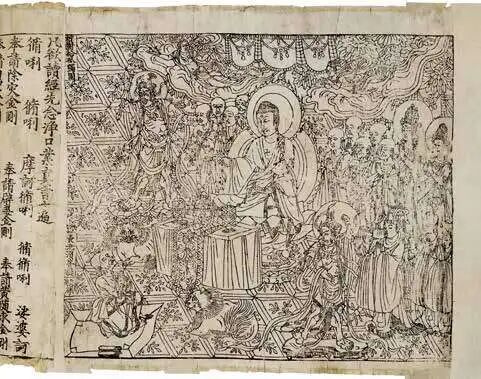 凡欲讀經先念淨口業真言一遍
脩唎 脩唎 摩訶脩唎 脩脩唎 娑婆訶
奉請除災金剛 奉請辟毒金剛 奉請黃隨求金剛
奉請